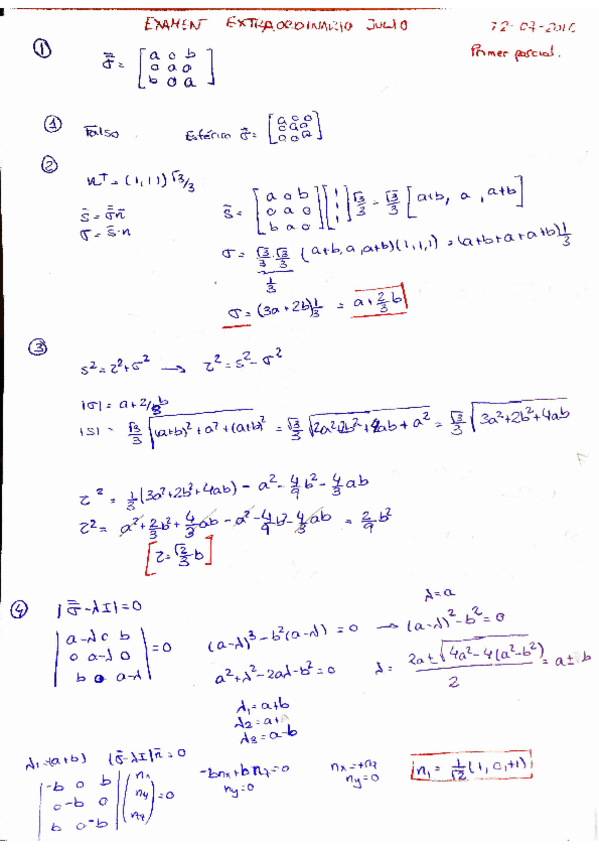 EXAMEN EXTRAORDINARIO JULIO 12-07-2016
Primer parcial.
① σ̿ = [a o b; o a o; b o a]
① Falso Esférico σ̿ = [a o o; o a o; o o a]
② nᵀ = (1,1,1) √3/3
s̄ = σ̿ n̄ s̄ = [a o b; o a o; b a o] [1; 1; 1] √3/3 = √3/3 [a+b, a, a+b]
σ = s̄·n
σ = √3/3 · √3/3 (a+b, a, a+b)(1,1,1) = (a+b+a+a+b) 1/3
1/3
σ = (3a+2b) 1/3 = a + 2/3 b
③ s² = τ² + σ² → τ² = s² − σ²
|σ| = a + 2/3 b
|s| = √3/3 √((a+b)² + a² + (a+b)²) = √3/3 √(2a²+2b²+4ab+a²) = √3/3 √(3a²+2b²+4ab)
τ² = 1/3 (3a²+2b²+4ab) − a² − 4/9 b² − 4/3 ab
τ² = a² + 2/3 b² + 4/3 ab − a² − 4/9 b² − 4/3 ab = 2/9 b²
[τ = √2/3 · b]
④ |σ̿ − λI| = 0 λ = a
|a-λ o b; o a-λ o; b o a-λ| = 0 (a-λ)³ − b²(a-λ) = 0 → (a-λ)² − b² = 0
a² + λ² − 2aλ − b² = 0 λ = (2a ± √(4a² − 4(a²−b²)))/2 = a ± b
λ₁ = a+b
λ₂ = a
λ₃ = a-b
λ₁ = (a+b) (σ̿ − λI) n̄ = 0
|-b o b; o -b o; b o -b| (nx; ny; nz) = 0 -bnx + bnz = 0 nx = +nz n₁ = 1/√2 (1, 0, +1)
ny = 0 ny = 0